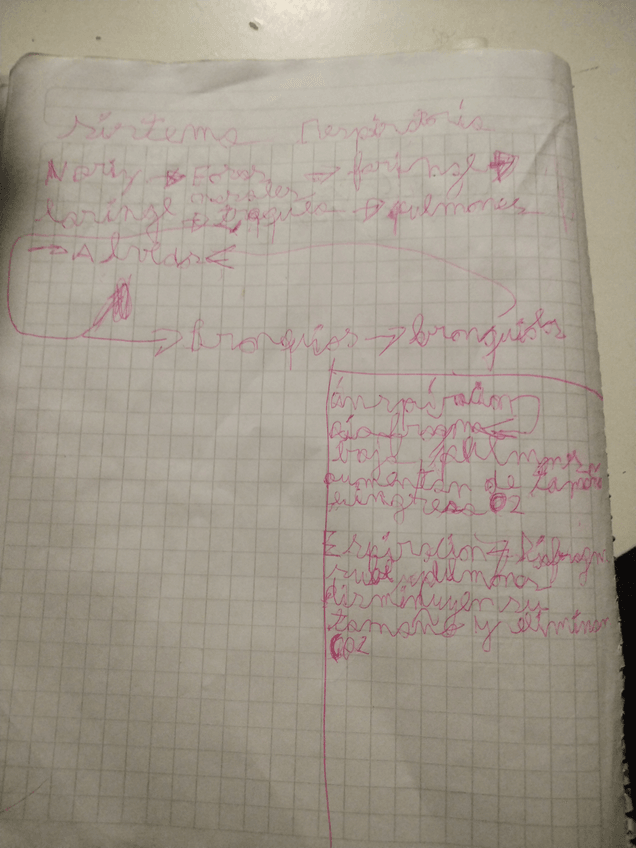 sistema respiratorio
Nariz → Fosas → faringe →
nasales
laringe → tráquea → pulmones
→ Alveolos
→ Bronquios → bronquiolos
inspiración
diafragma
baja pulmones
aumentan de tamaño
e ingresa O2
Espiración → Diafragma
sube pulmones
disminuyen su
tamaño y eliminan
CO2